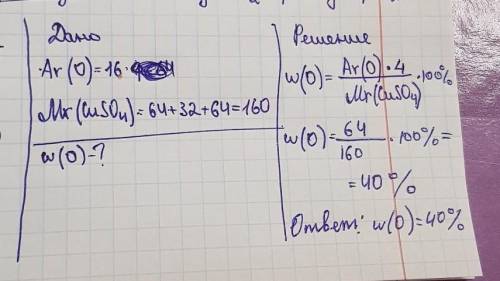 Дано
Ar(O)=16
Mr(CuSO₄)=64+32+64=160
w(O)-?
Решение
w(O)= Ar(O)·4 / Mr(CuSO₄) ·100%
w(O)= 64 / 160 ·100%=
=40%
Ответ: w(O)=40%